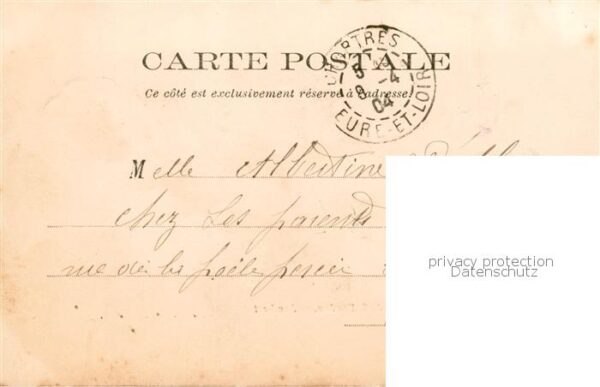 CARTE POSTALE
CHARTRES
5
8 -4
04
EURE-ET-LOIR
Ce côté est exclusivement réservé à l'adresse.
Melle Albertine
chez Les parents
rue de la poële percée
privacy protection
Datenschutz